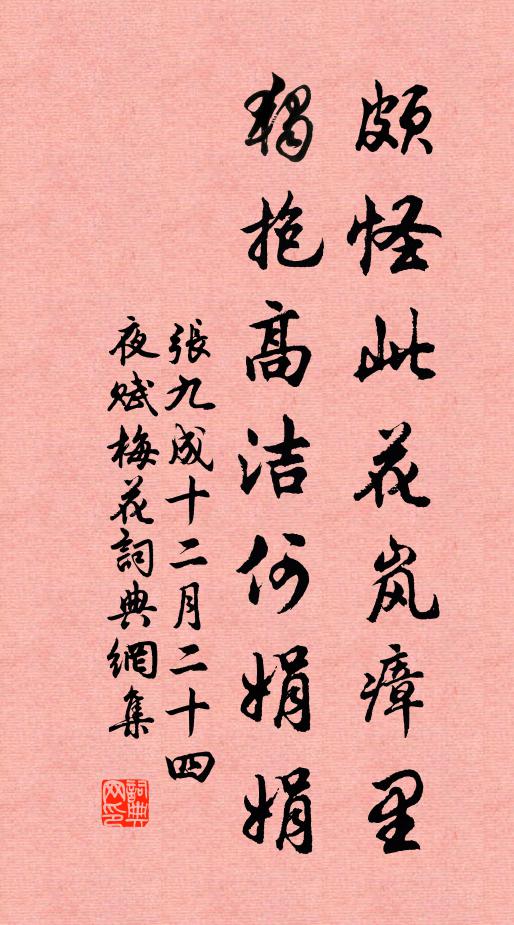 颇怪此花岚瘴里
独抱高洁何娟娟
張九成十二月二十四
夜赋梅花詞典網集
詞典網印